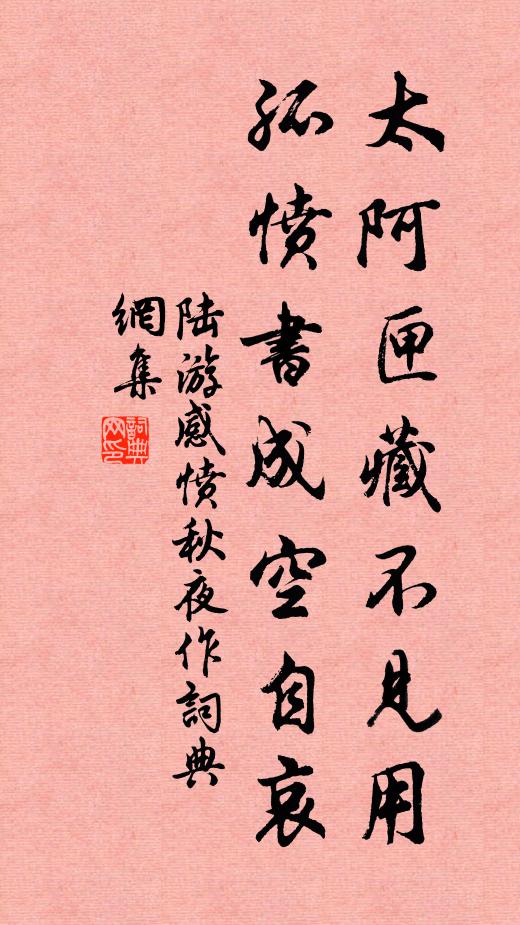 太阿匣藏不見用
孤憤書成空自哀
陆游感憤秋夜作詞典
網集
詞典
网印